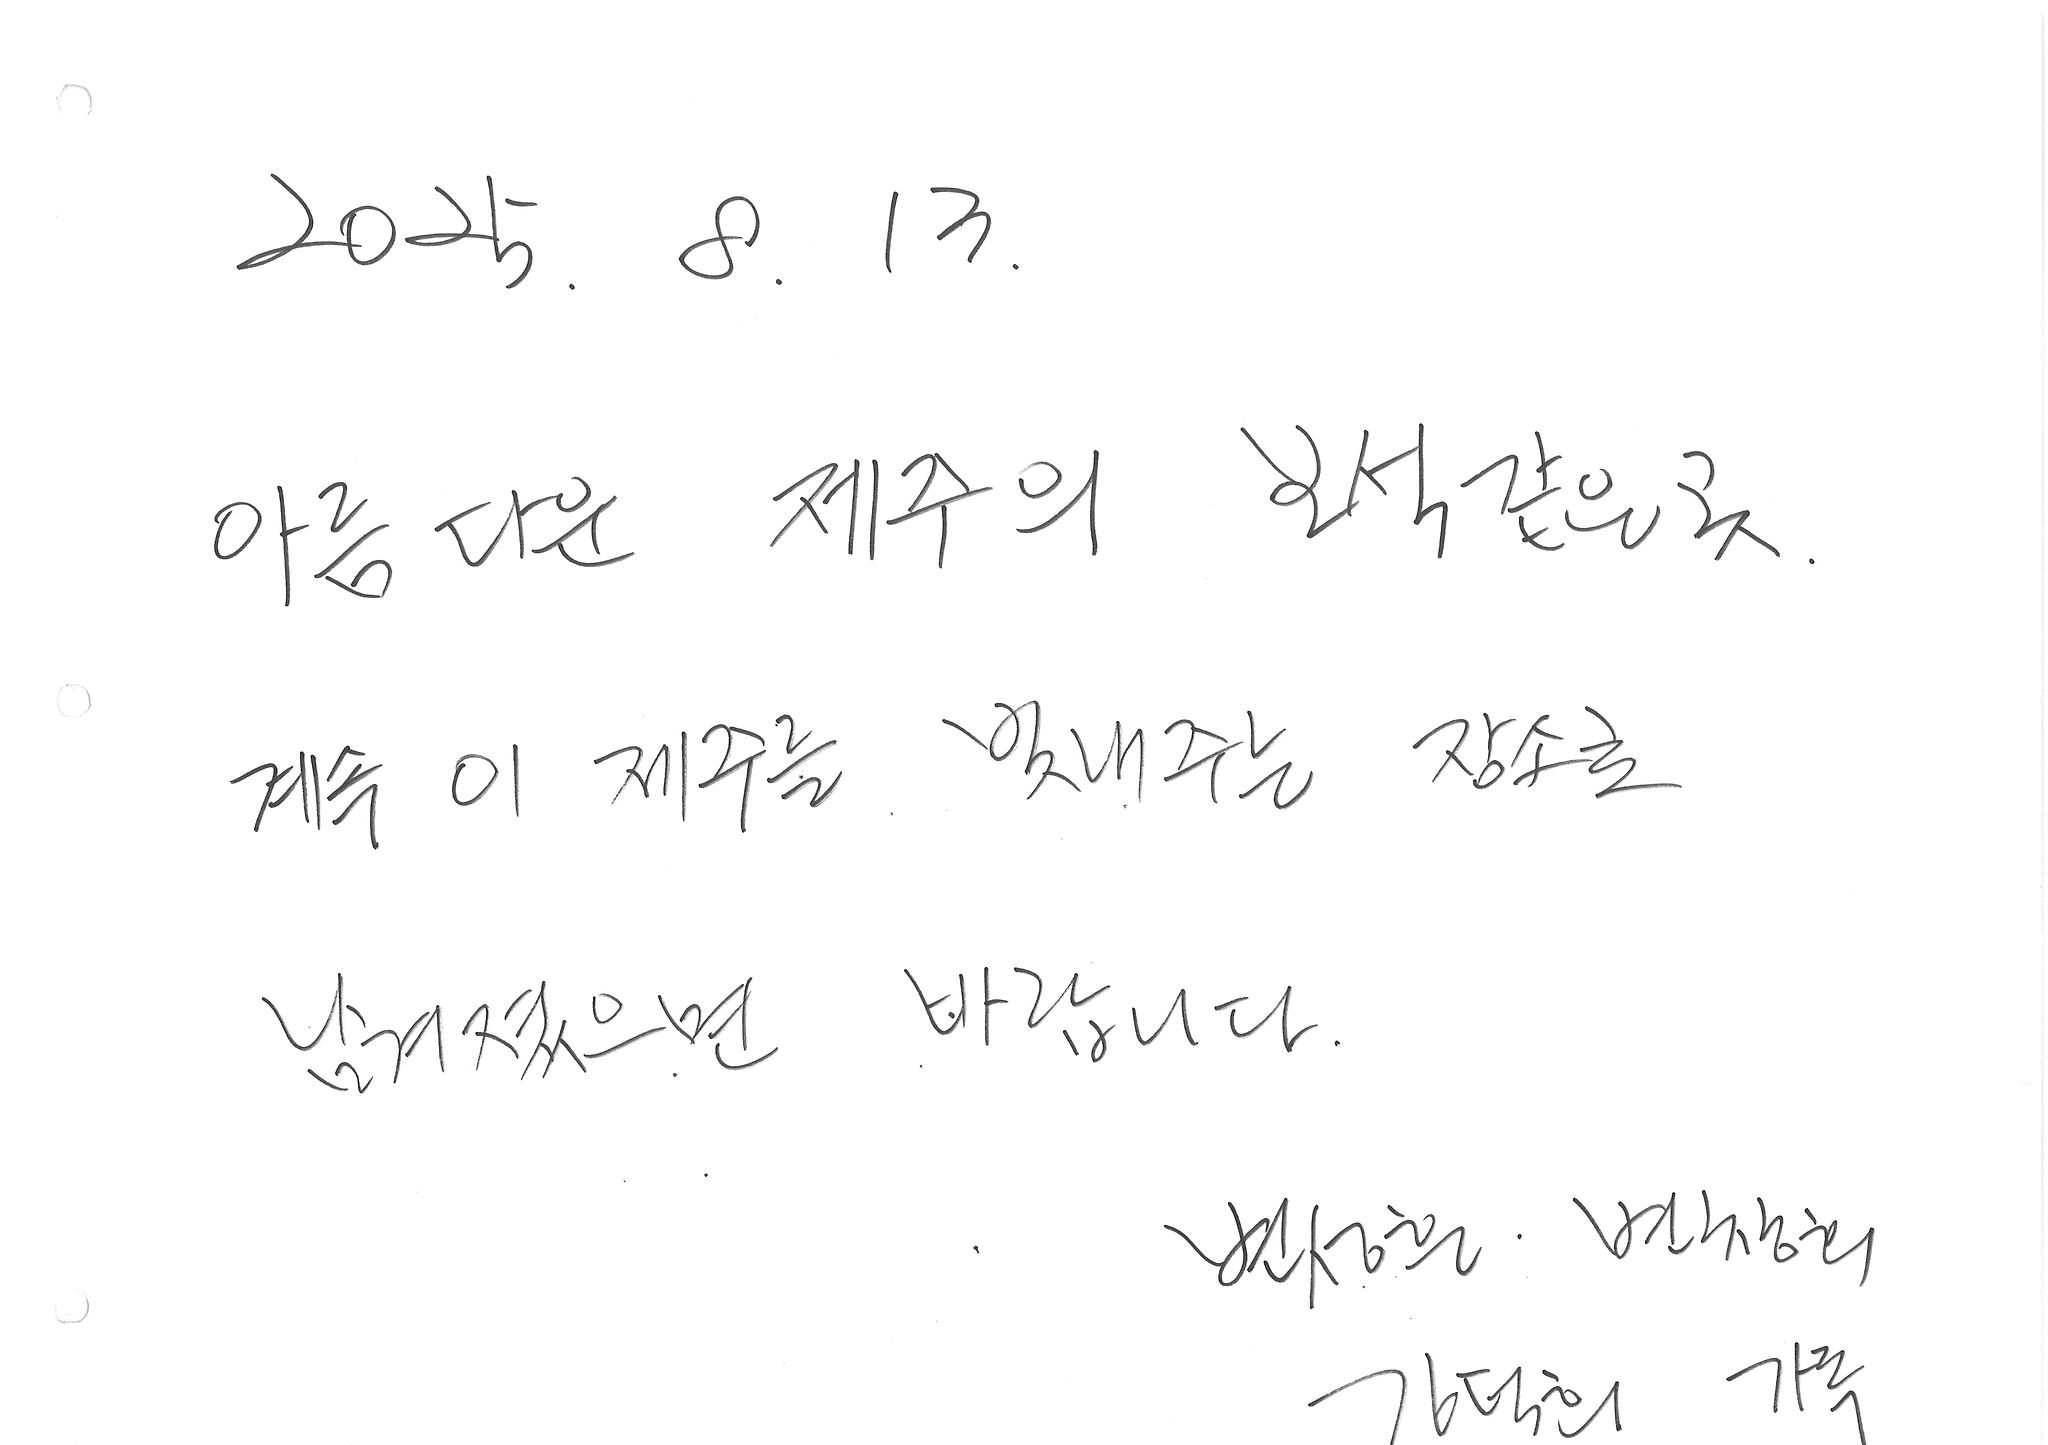 2025. 8. 13.
아름다운 제주의 보석같은 곳.
계속 이 제주를 빛내주는 장소로
남겨졌으면 바랍니다.
변성훈. 변창희
김덕희 가족